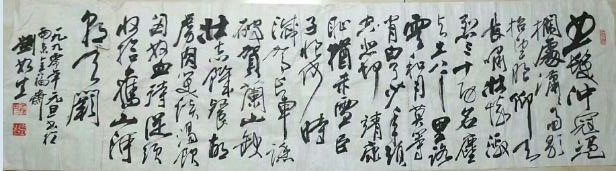 怒髮沖冠憑
欄處瀟瀟雨歇
抬望眼仰天
長嘯壯懷激
烈三十功名塵
與土八千里路
雲和月莫等
閒白了少年頭
空悲切靖康
恥猶未雪臣
子恨何時
滅駕長車踏
破賀蘭山缺
壯志飢餐胡
虜肉笑談渴飲
匈奴血待從頭
收拾舊山河
朝天闕
一九九零年元旦書於
南京
劉